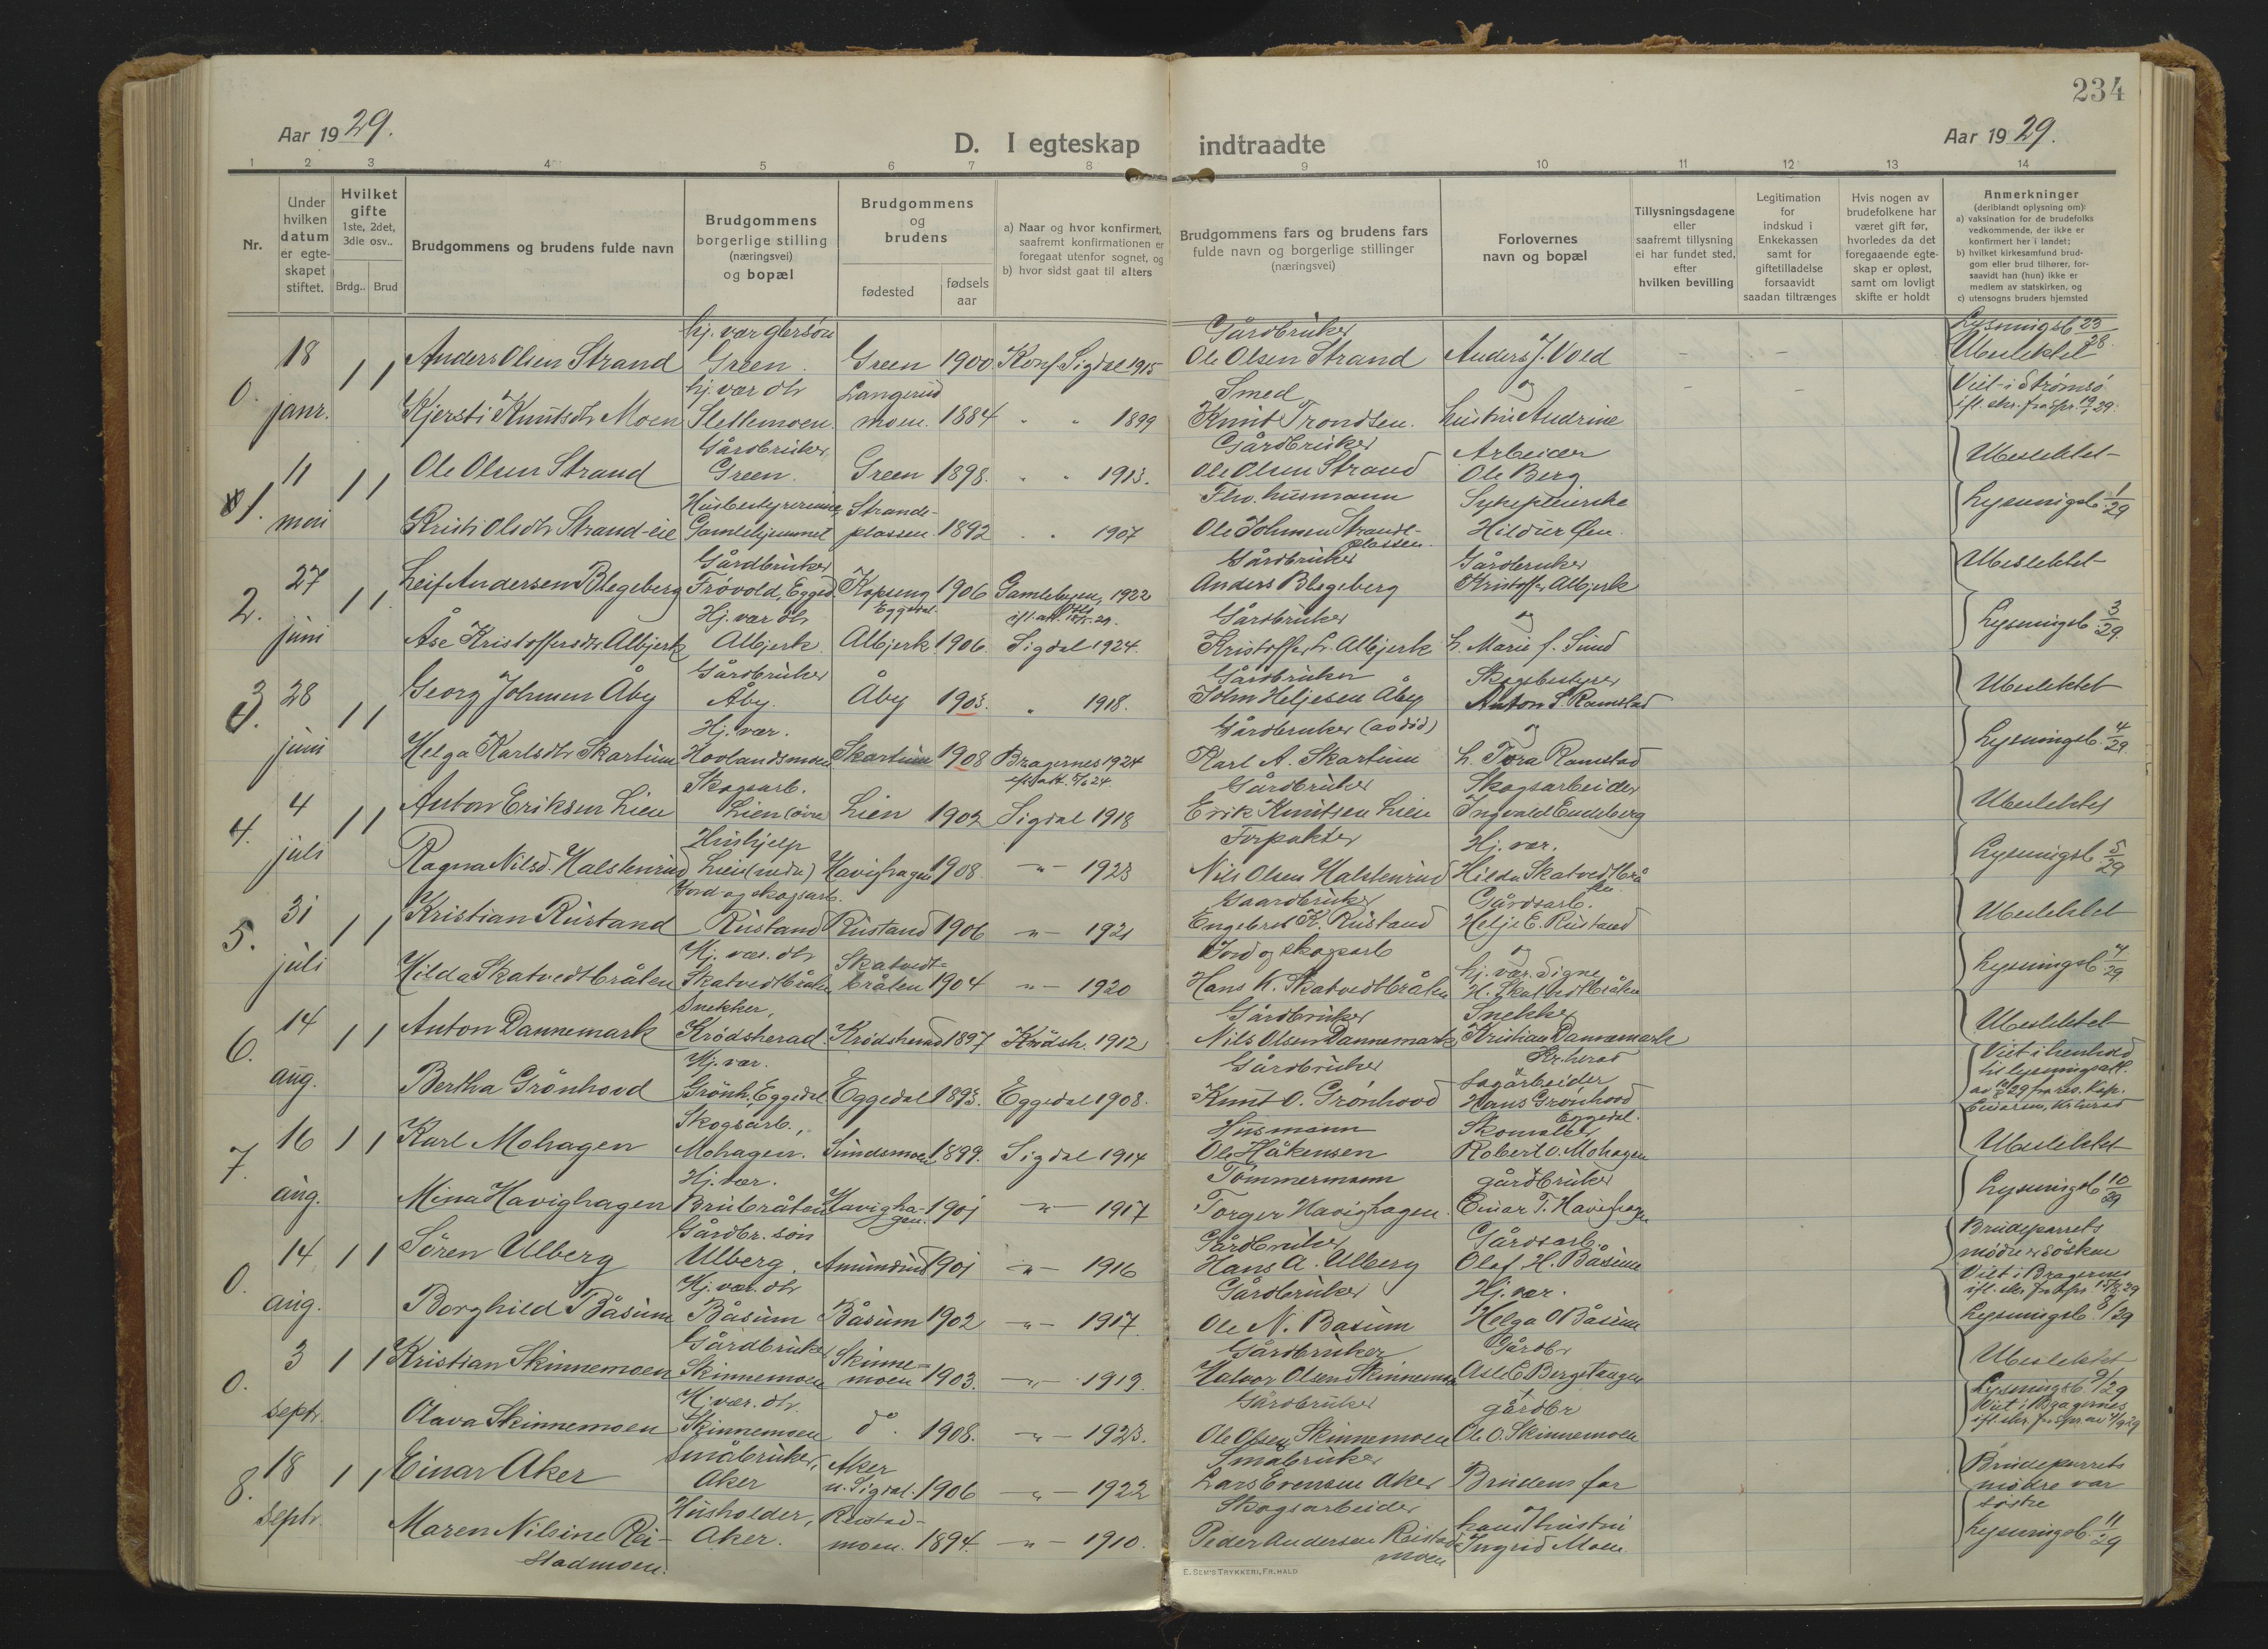 234
Aar 1929.
D. I egteskap indtraadte
Aar 1929.
1 2 3 4 5 6 7 8 9 10 11 12 13 14
Nr.
Under hvilken datum er egteskapet stiftet.
Hvilket gifte 1ste, 2det, 3die osv..
Brdg.. Brud
Brudgommens og brudens fulde navn
Brudgommens borgerlige stilling (næringsvei) og bopæl
Brudgommens og brudens
fødested
fødsels aar
a) Naar og hvor konfirmert, saafremt konfirmationen er foregaat utenfor sognet, og
b) hvor sidst gaat til alters
Brudgommens fars og brudens fars fulde navn og borgerlige stillinger (næringsvei)
Forlovernes navn og bopæl
Tillysningsdagene eller saafremt tillysning ei har fundet sted, efter hvilken bevilling
Legitimation for indskud i Enkekassen samt for giftetilladelse forsaavidt saadan tiltrænges
Hvis nogen av brudefolkene har været gift før, hvorledes da det foregaaende egteskap er opløst, samt om lovligt skifte er holdt
Anmerkninger (deriblandt oplysning om):
a) vaksination for de brudefolks vedkommende, der ikke er konfirmert her i landet;
b) hvilket kirkesamfund brudgom eller brud tilhører, forsaavidt han (hun) ikke er medlem av statskirken, og
c) utensogns bruders hjemsted
hj. vær gbrsøn Gårdbruker Lysningsb 23/28.
0. 18 1 1 Anders Olsen Strand Green. Green 1900 Konf. Sigdal 1915 Ole Olsen Strand Anders J. Vold - - Ubeslektet
hj. vær dtr Langerud Smed og - - Viet i Strømsø
janr. Kjersti Knutsdtr Moen Slettemoen. moen. 1884 " " 1899 Knut Trondsen. hustru Andrine ifl. skr. fra spr. 19/1 29.
Gårdbruker Gårdbruker Arbeider
1. 11 1 1 Ole Olsen Strand Green. Green 1898. " " 1913. Ole Olsen Strand Ole Berg Ubeslektet
Husbestyrerinne Strands- Fhv. husmann Sykepleierske Lysningsb 1/29
mai Kristi Olsdtr Strand-eie Gamlehjemmet plassen 1892 " " 1907 Ole Johnsen Strands-plassen. Hildur Øen
Gårdbruker Gårdbruker Gårdbruker Ubeslektet
2. 27 1 1 Leif Andersen Blegeberg Frøvold, Eggedl Kopseng Eggedal 1906 Gamlebyen, 1922 Anders Blegeberg Kristoffer Albjerk
Hj. vær dtr Gårdbruker og Lysningsb 3/29.
juni Åse Kristoffersdtr. Albjerk Albjerk. Albjerk 1906. Sigdal 1924. Kristoffer Albjerk h. Marie f. Sund
Gårdbruker Gårdbruker Skogsbestyrer Ubeslektet
3. 28 1 1 Georg Johnsen Åby Åby. Åby 1903. " 1918. John Heljesen Åby Anton S. Ramstad
Hj. vær. Gårdbruker (avdød) og Lysningsb. 4/29
juni Helga Karlsdtr Skartum Hovlandsmoen Skartum 1908 Bragernes 1924 Karl A. Skartum h. Tora Ramstad
Skogsarb. Gårdbruker Skogsarbeider
4. 4 1 1 Anton Eriksen Lien Lien (øvre) Lien 1902 Sigdal 1918 Erik Knutsen Lien Ingvald Endeberg Ubeslektet
Hushjelp Forpakter Hj. vær.
juli Ragna Nilsd. Halstenrud Lien (nedre) Havighagen 1908. -"- 1923 Nils Olsen Halstenrud Hilda Skatvedtbråten Lysningsb 5/29
Jord og skogsarb. Gaardbruker Gårdsarb.
5. 31 1 1 Kristian Rustand Rustand Rustand 1906 -"- 1921 Engebret K. Rustand Helje E. Rustand Ubeslektet
Hj. vær. dtr Skatvedt- Jord og skogsarb og hj. vær. Signe Lysningsb 7/29
juli Hilda Skatvedtbråten Skatvedtbråten bråten 1904 -"- 1920 Hans K. Skatvedtbråten H. Skatvedtbråten
Snekker, Gårdbruker Snekker Ubeslektet
6. 14 1 1 Anton Dannemark Krødsherad. Krødsherad 1897 Krødsh. 1912 Nils Olsen Dannemark Kristian Dannemark Kr.herad
Hj. vær. Gårdbruker Sagarbeider
aug. Bertha Grønhovd Grønh. Eggedal Eggedal 1893. Eggedal 1908. Knut O. Grønhovd Hans Grønhovd Eggedal.
Skogsarb., Husmann Skomaker
7. 16 1 1 Karl Mohagen Mohagen. Sundsmoen 1899. Sigdal 1914 Ole Håkensen Robert O. Mohagen Ubeslektet
Hj. vær. Tømmermann gårdbruker Lysningsb 10/29
aug. Mina Havighagen Brubråten Havighagen. 1901 -"- 1917 Torger Havighagen. Einar T. Havighagen
Gårdbr. søn Gårdbruker Gårdsarb. Brudeparrets mødre er søsken
0. 14 1 1 Søren Ulberg Ulberg. Amundrud 1901 -"- 1916 Hans A. Ulberg Olaf H. Båsum
Hj. vær. dtr Gårdbruker Hj. vær. Viet i Bragernes ifl. skr. fra spr. 15/8 29
aug. Borghild Båsum Båsum Båsum 1902 -"- 1917. Ole N. Basum Helga O Båsum Lysningsb. 8/29
Gårdbruker Skinne- Gårdbruker Gårdbr Ubeslektet
0. 3 1 1 Kristian Skinnemoen Skinnemoen moen 1903. -"- 1919. Halvor Olsen Skinnemoen Asle E Bergstangen
Hj. vær. dtr. Gårdbruker gårdbr Lysningsb. 9/29 Viet i Bragernes
septr. Olava Skinnemoen Skinnemoen do. 1908. -"- 1923. Ole Olsen Skinnemoen Ole O. Skinnemoen
Småbruker, Aker Småbruker Brudeparrets mødre var søstre
8. 18 1 1 Einar Aker Aker n. Sigdal. 1906 -"- 1922 Lars Evensen Aker Brudens far
Husholder, Reistad- Skogsarbeider hans hustru Lysningsb. 11/29
Septr Maren Nilsine Reistadmoen. Aker. moen. 1894. -"- 1910. Peder Andersen Reistadmoen Ingrid Moen.
E. SEM'S TRYKKERI, FR.HALD